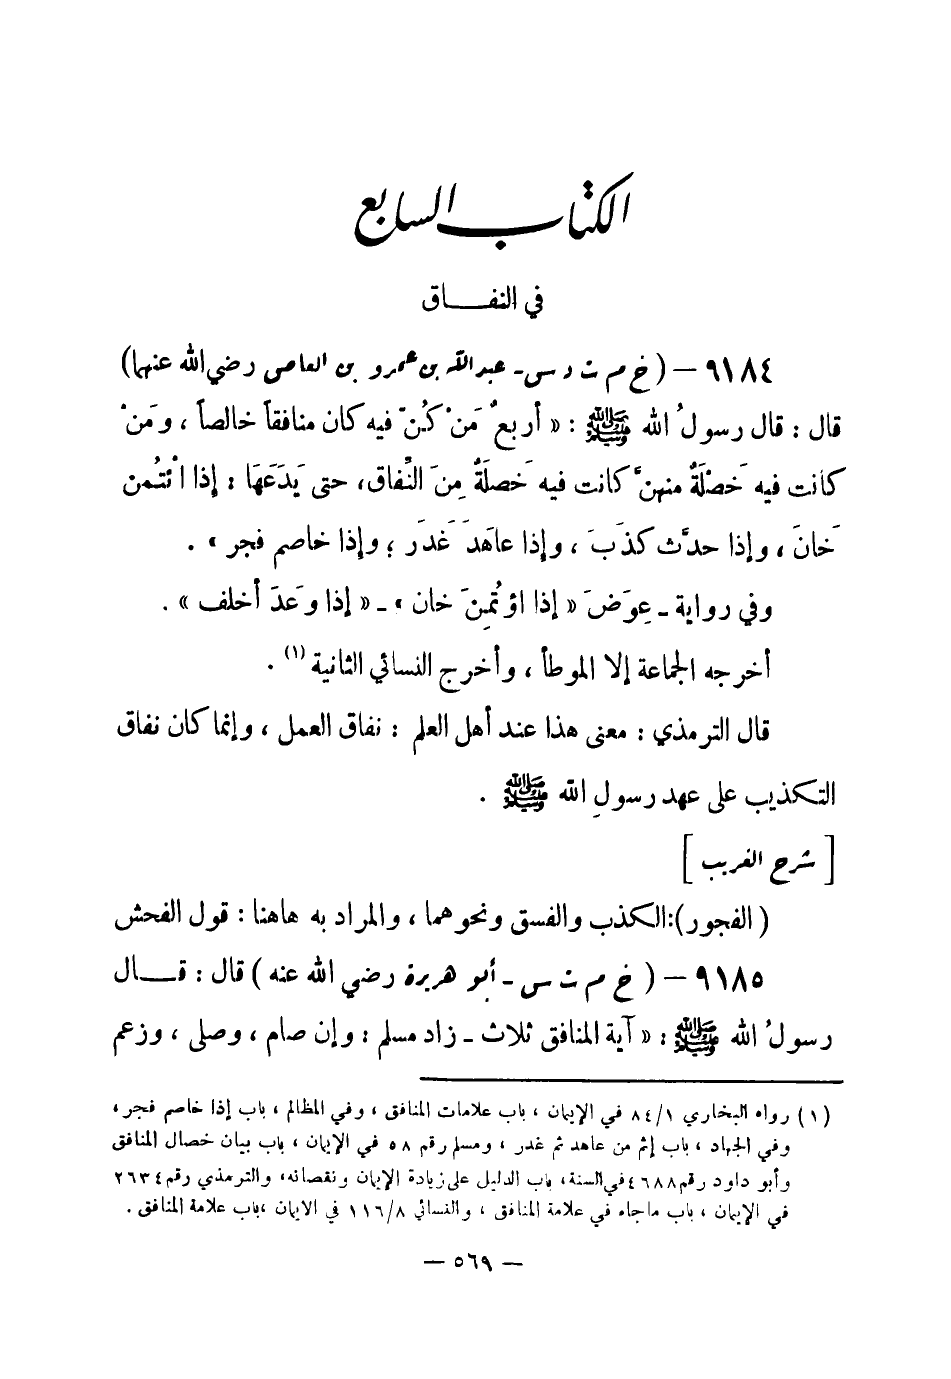 الكتاب السابع
في النفـــاق
٩١٨٤ – ( خ م ت د س - عبد الله بن عمرو بن العاص رضي الله عنهما )
قال : قال رسولُ الله ﷺ : « أربعٌ مَنْ كُنّ فيه كان منافقاً خالصاً ، ومَنْ
كانت فيه خَصْلَةٌ منهنَّ كانت فيه خَصلَةٌ مِنَ النِّفاق، حتى يَدَعَهَا : إذا ائتُمن
خَانَ ، وإذا حدَّث كذَبَ ، وإذا عاهَدَ غَدَر ؛ وإذا خاصم فجر » .
وفي رواية ـ عِوَضَ « إذا اؤتُمِنَ خان » ـ « إذا وَعَدَ أخلف » .
أخرجه الجماعة إلا الموطأ ، وأخرج النسائي الثانية (١) .
قال الترمذي : معنى هذا عند أهل العلم : نفاق العمل ، وإنما كان نفاق
التكذيب على عهد رسولِ الله ﷺ .
[ شرح الغريب ]
( الفجور ):الكذب والفسق ونحوهما ، والمراد به هاهنا : قول الفحش
٩١٨٥ – ( خ م ت س - أبو هريرة رضي الله عنه ) قال : قـــال
رسولُ الله ﷺ : « آية المنافق ثلاث ـ زاد مسلم : وإن صام ، وصلى ، وزعم
(١) رواه البخاري ٨٤/١ في الإيمان ، باب علامات المنافق ، وفي المظالم ، باب إذا خاصم فجر ،
وفي الجهاد ، باب إثم من عاهد ثم غدر ، ومسلم رقم ٥٨ في الإيمان ، باب بيان خصال المنافق
وأبو داود رقم ٤٦٨٨ في السنة، باب الدليل على زيادة الإيمان ونقصانه، والترمذي رقم ٢٦٣٤
في الإيمان ، باب ماجاء في علامة المنافق ، والنسائي ١١٦/٨ في الايمان ،باب علامة المنافق .
– ٥٦٩ –